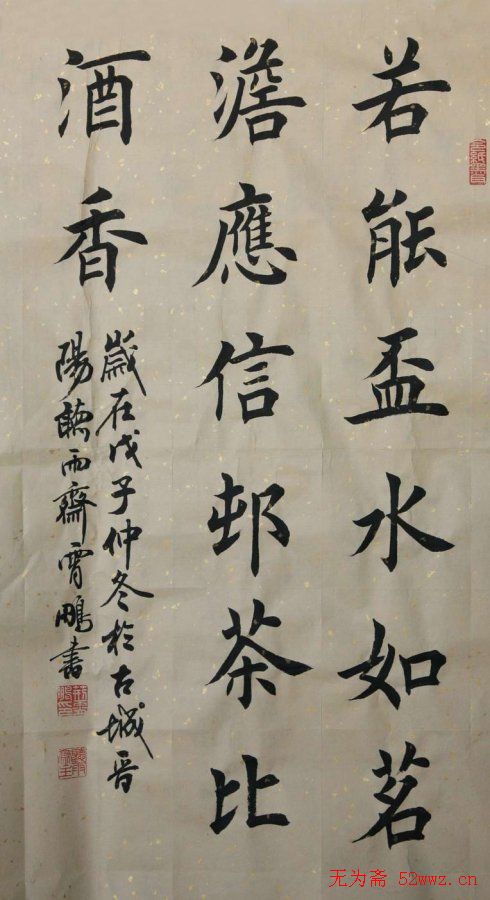 若能盃水如茗
澹應信邨茶比
酒香
歲在戊子仲冬於古城晉
陽聽雨齋霄鵬書
无为斋 52wwz.cn